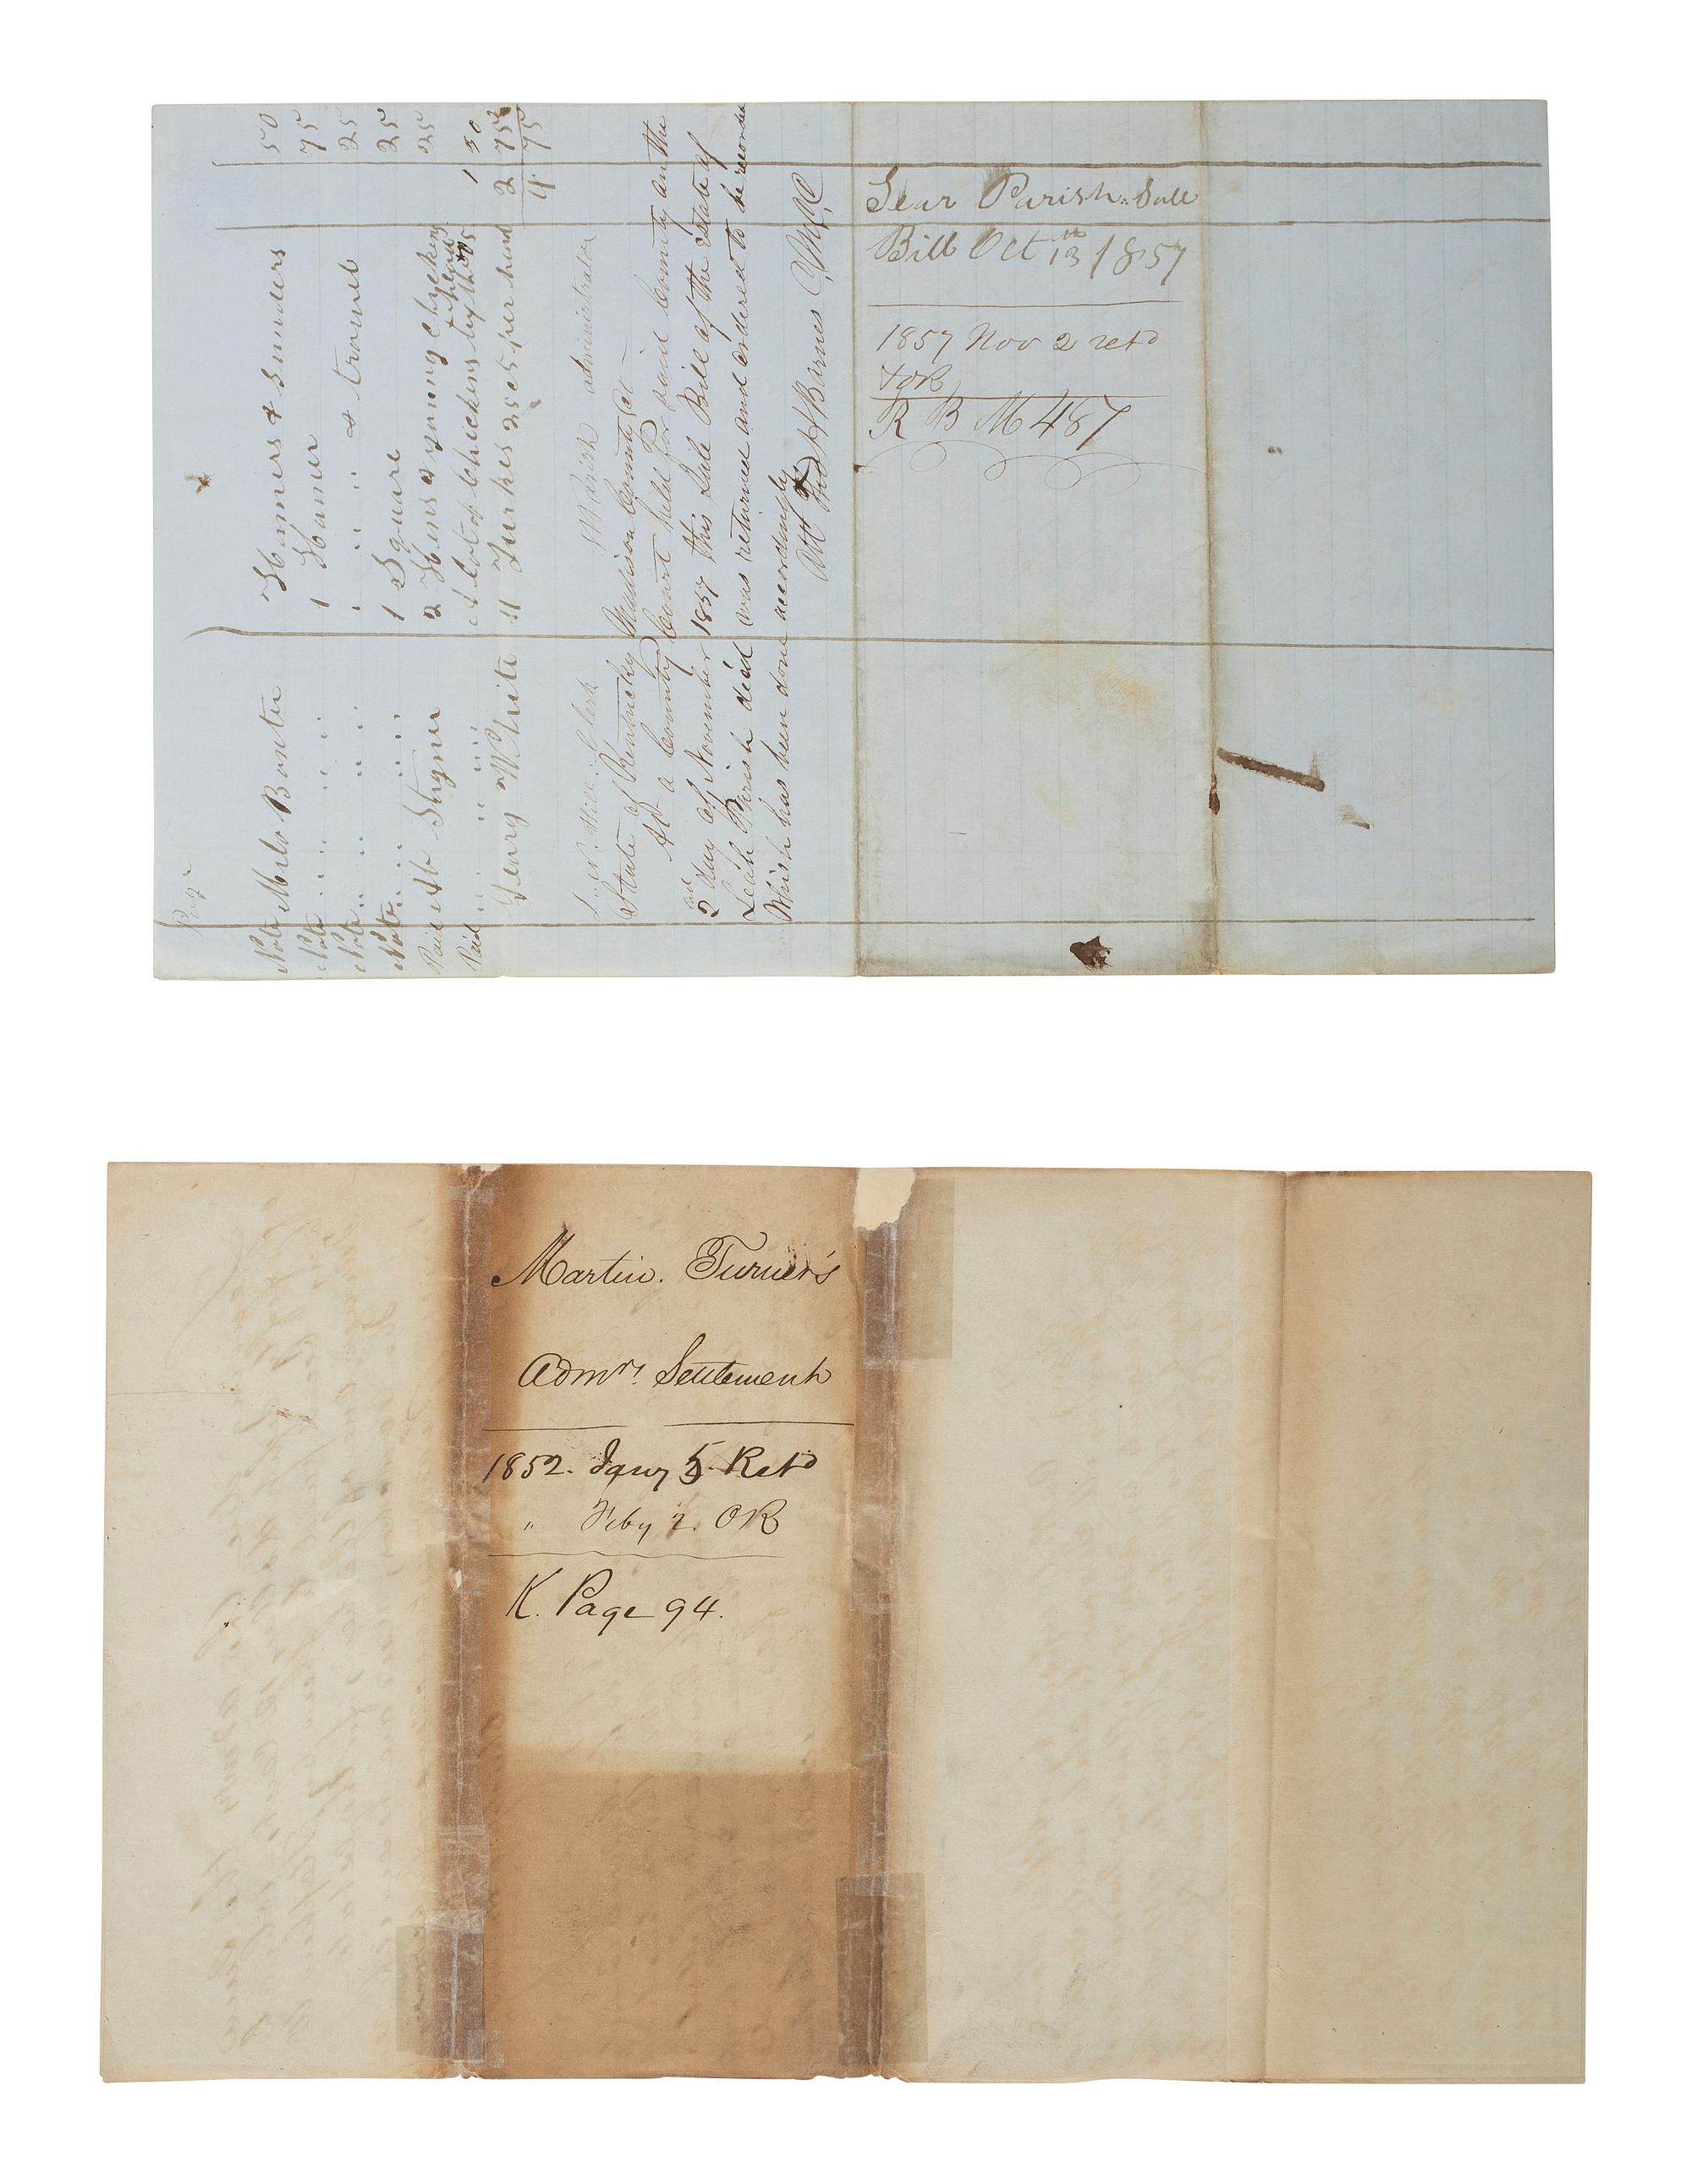 Note Milo Baxter Hamers & Sunders 50
Note " " " 1 Hamer 75
Note " " " " " & trowel 25
Note " " " 1 Square 25
Paid 2 Hens & young Chickens 25
Paid " " A lot of Chickens by the 1 50
White 11 Turkies 25 cts per head 2 75
4 75
Clerk administrator
State of Kentucky Madison County Sct
At a County Court held for said County on the
2nd day of November 1857 this Sale Bill of the estate of
Leah Parish decd was returned and ordered to be recorded
Which has been done accordingly
Att Barnes C.M.C.C
Lear Parish Sale
Bill Oct 13th 1857
1857 Nov 2 retd
& OR
R B M 487
Martin. Turner's
Admrs. Settlement
1852. Jany 5. Retd
" Feby 2. OR
K. Page 94.